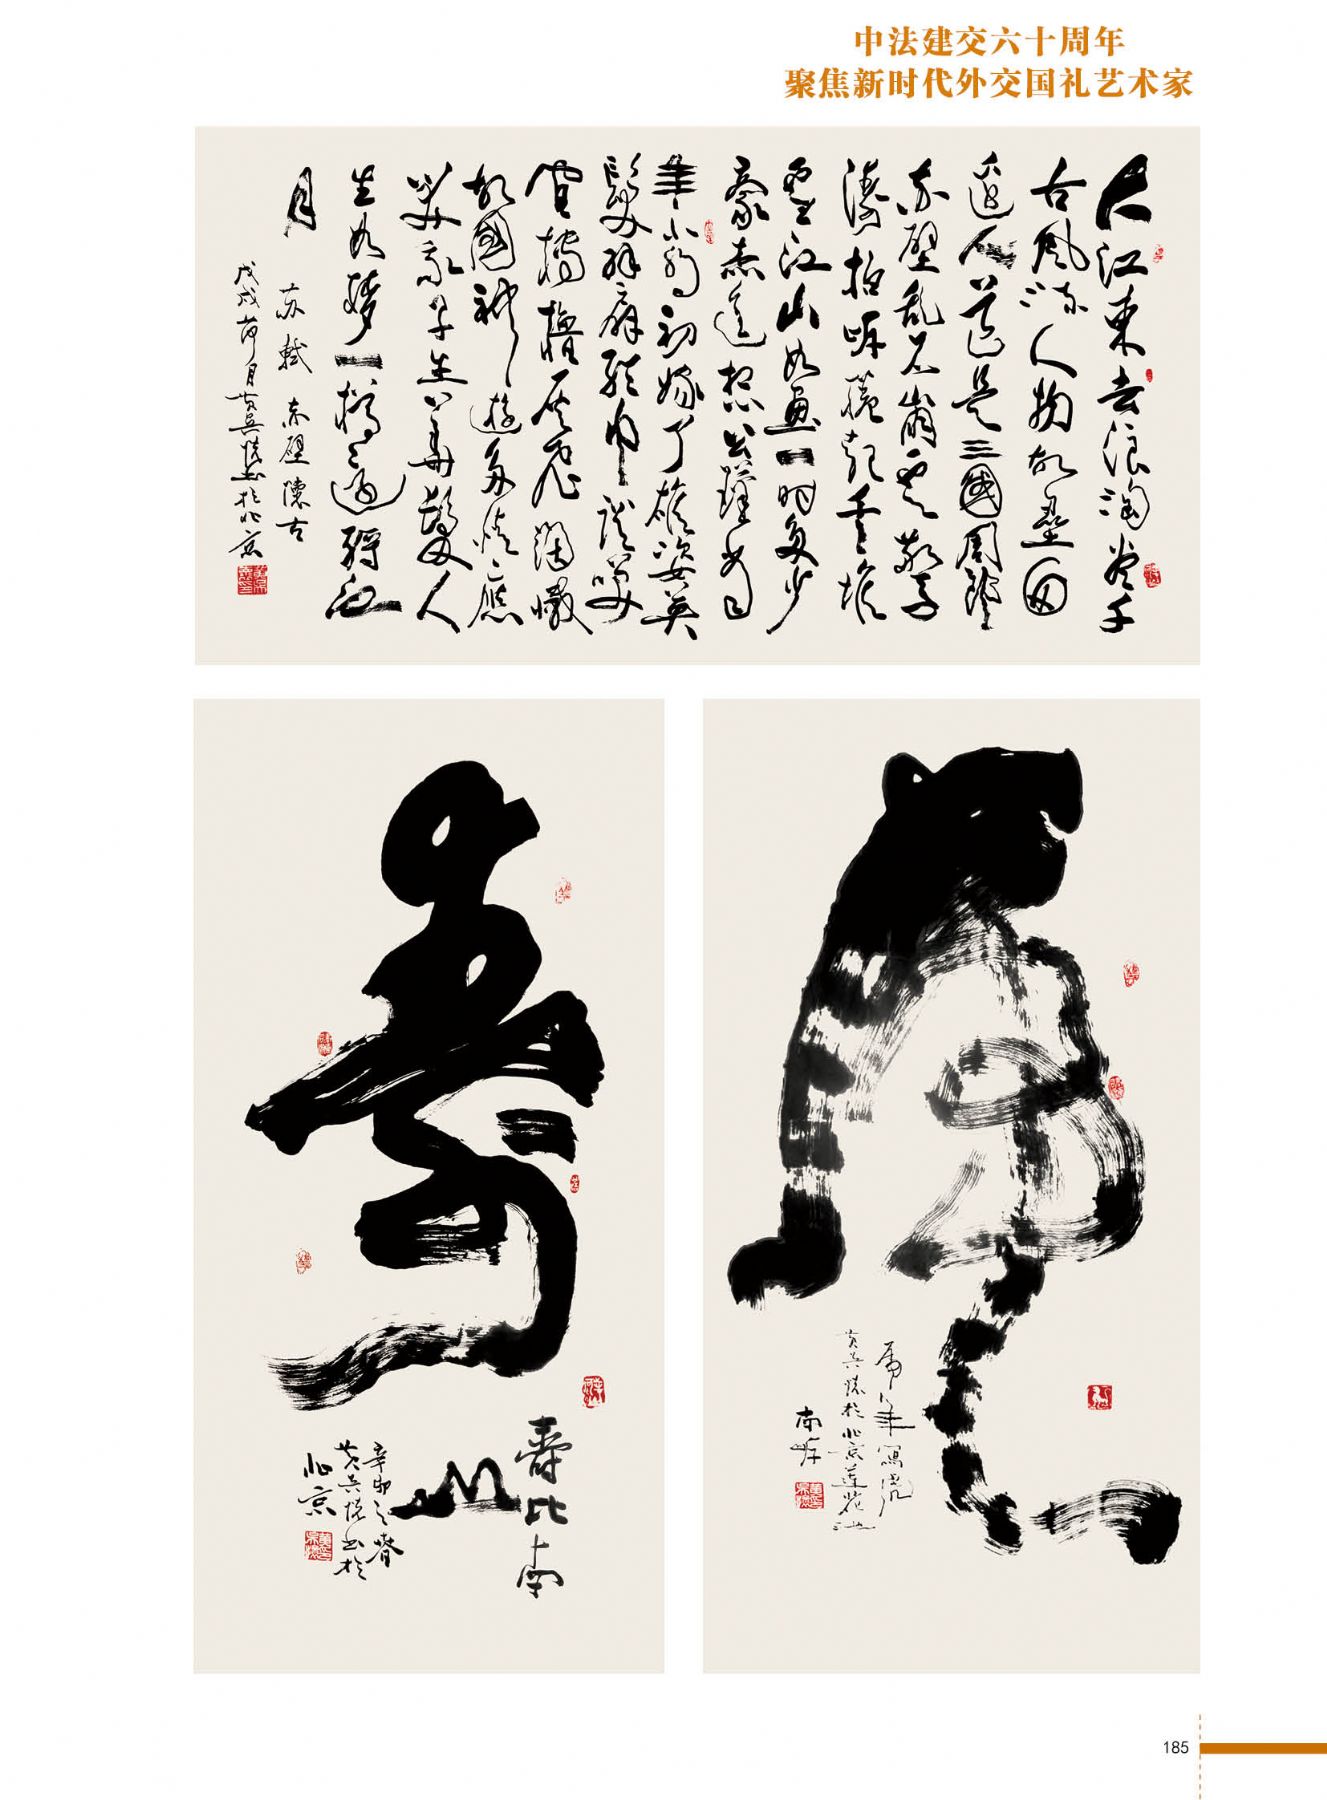 中法建交六十周年
聚焦新时代外交国礼艺术家
大江东去浪淘尽千
古风流人物故垒西
边人道是三國周郎
赤壁乱石崩云惊
涛拍岸卷起千堆
雪江山如画一时多少
豪杰遥想公瑾当
年小乔初嫁了雄姿英
发羽扇纶巾谈笑
间樯橹灰飞烟
故國神游多情应
笑我早生华发人
生如梦一樽还酹江
月
苏轼 赤壁怀古
戊戌 月 於北京
寿
寿比南
山
辛卯之春
书於
北京
虎
虎年写虎
於北京莲花池
南岸
185